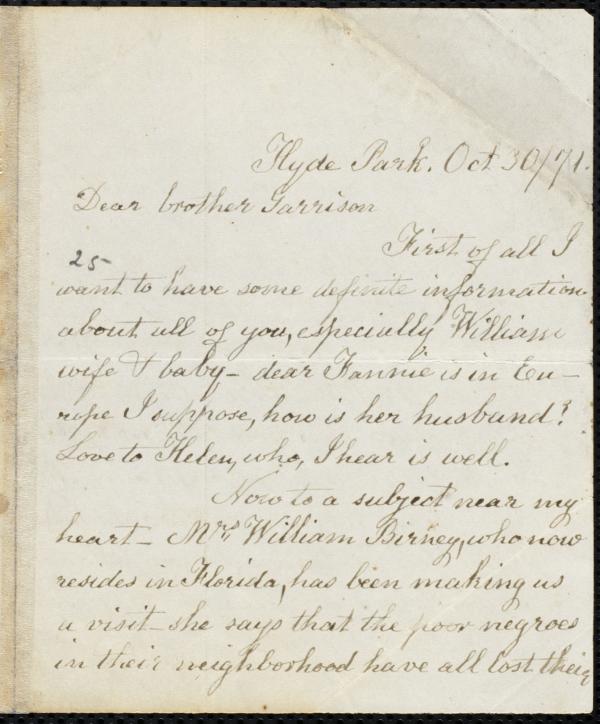 Hyde Park. Oct 30/71.
Dear brother Garrison
First of all I
25
want to have some definite information
about all of you, especially William
wife & baby - dear Fannie is in Eu-
rope I suppose, how is her husband?
Love to Helen, who, I hear is well.
Now to a subject near my
heart - Mrs William Birney, who now
resides in Florida, has been making us
a visit - she says that the poor negroes
in their neighborhood have all lost their